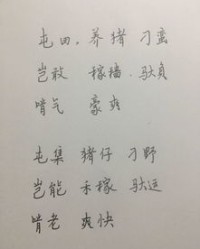 屯田，养猪 刁蛮
岂敢 稼穑 驮负
啃气 豪爽
屯集 猪仔 刁野
岂能 禾稼 驮运
啃老 爽快